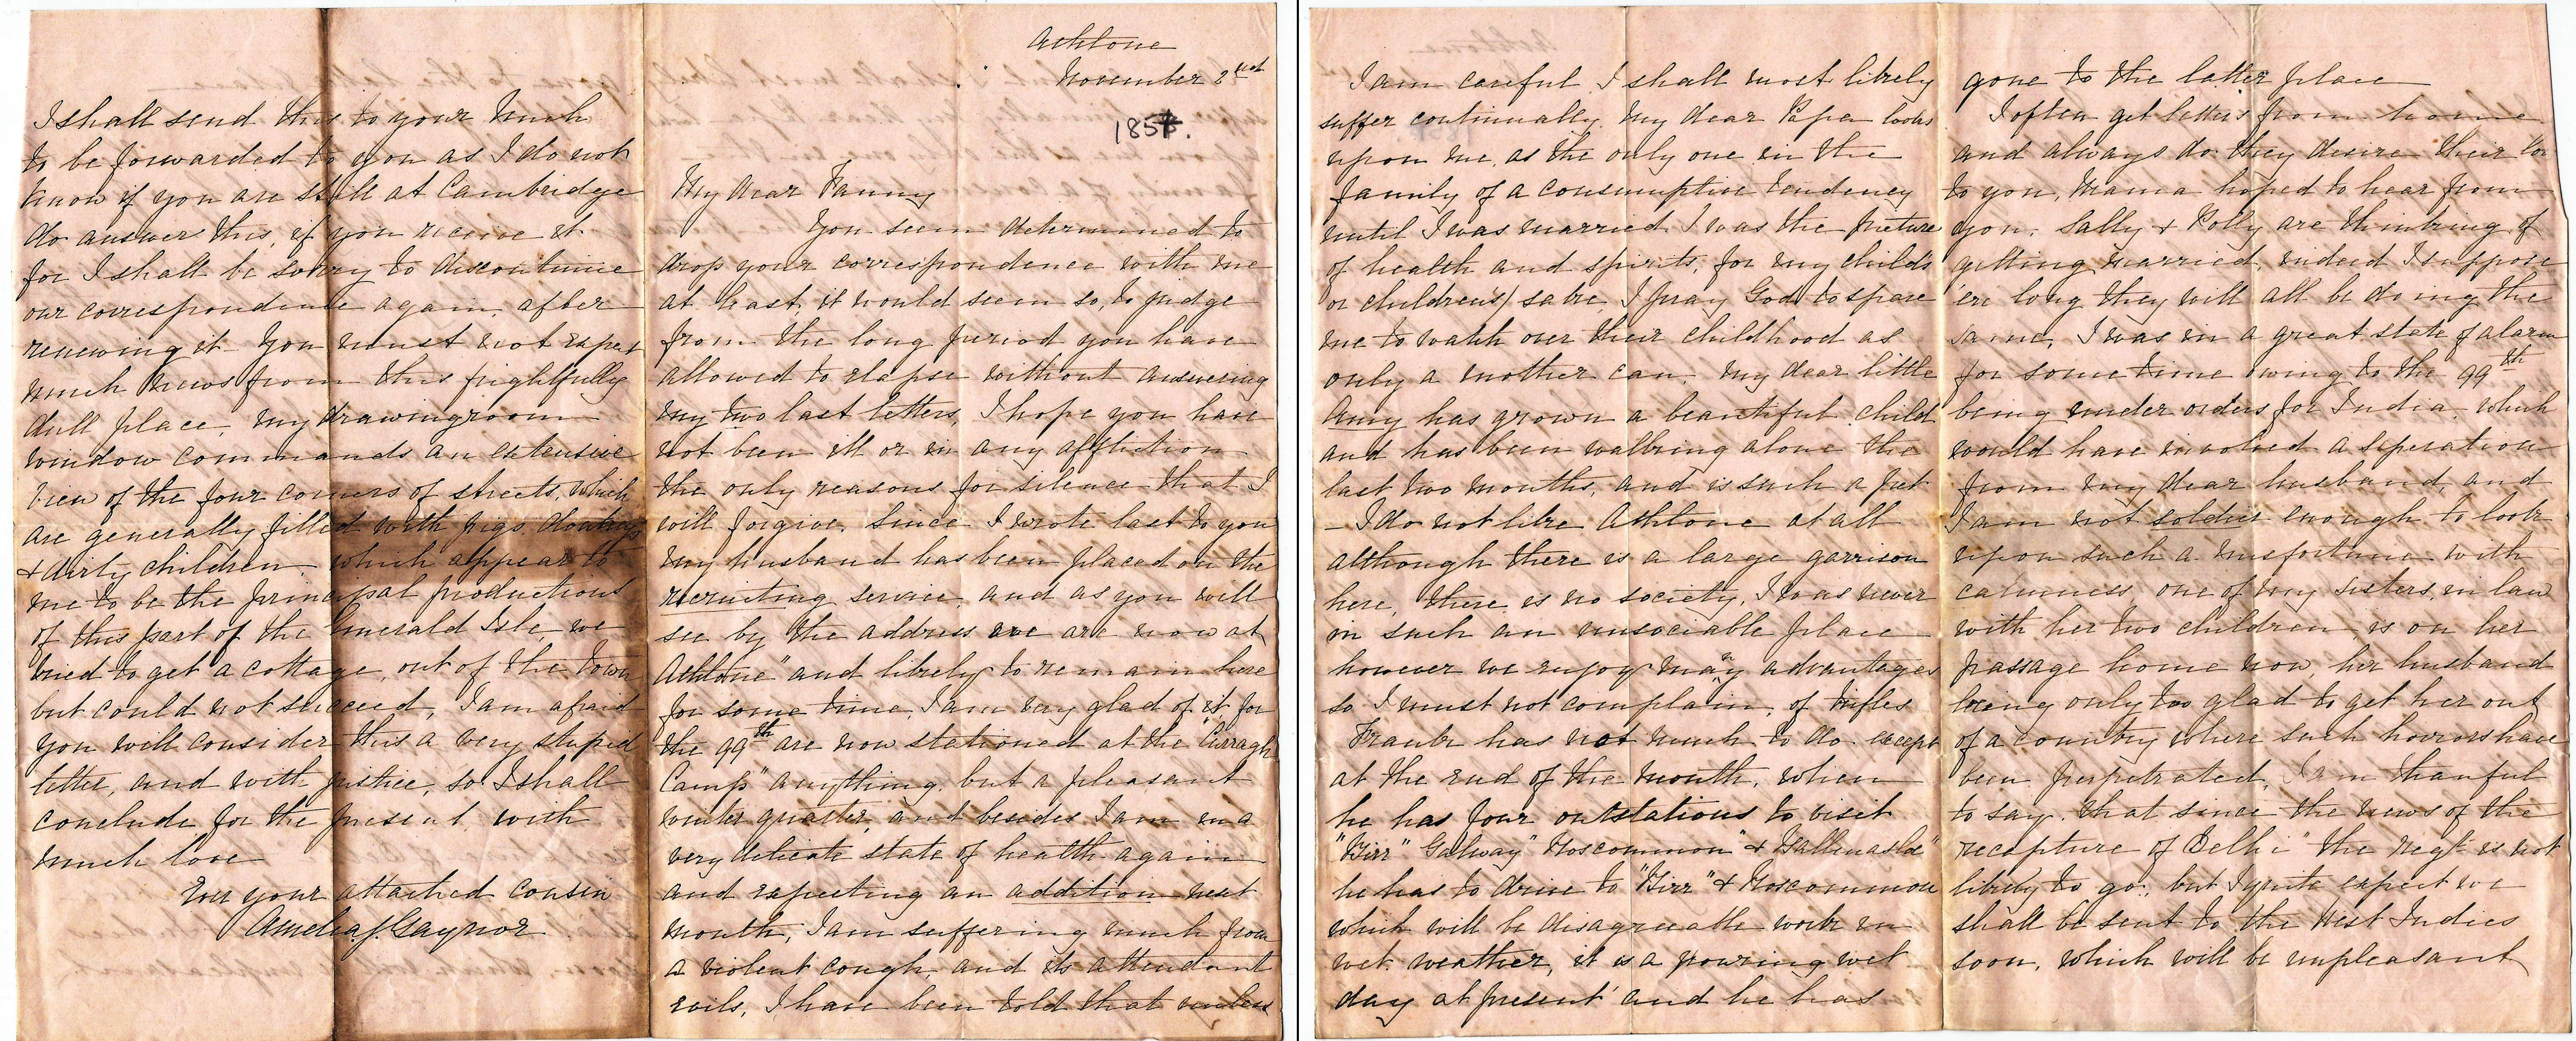 Athlone
November 2nd
1857.
My dear Fanny
You seem determined to
drop your correspondence with me
at least, it would seem so, to judge
from the long period you have
allowed to elapse without answering
my two last letters, I hope you have
not been ill or in any affliction
the only reasons for silence that I
will forgive. Since I wrote last to you
my husband has been placed on the
recruiting service, and as you will
see by the address we are now at
Athlone" and likely to remain here
for some time, I am very glad of it, for
the 99th are now stationed at the "Curragh
Camp" anything, but a pleasant
winter quarter, and besides I am in a
very delicate state of health again
and expecting an addition next
month, I am suffering much from
a violent cough, and its attendant
evils, I have been told that unless
I am careful I shall most likely
suffer continually. My dear Papa looks
upon me, as the only one in the
family of a consumptive tendency
until I was married I was the picture
of health and spirits, for my child's
or children's/ sake, I pray God to spare
me to watch over their childhood as
only a mother can. My dear little
Amy has grown a beautiful child
and has been walking alone the
last two months, and is such a pet
- I do not like Athlone at all
although there is a large garrison
here, there is no society, I was never
in such an unsociable place
however we enjoy many advantages
so I must not complain, of trifles
Frank has not much to do except
at the end of the month, when
he has four outstations to visit
"Birr" Galway" Roscommon" &
he has to drive to "Birr" & Roscommon
which will be disagreeable work in
wet weather, it is a pouring wet
day at present and he has
gone to the latter place
I often get letters from home
and always do they desire their
to you, Mama hoped to hear from
you, Sally & Polly are thinking of
getting married, indeed I suppose
'ere long they will all be doing the
same, I was in a great state of alarm
for some time owing to the 99th
being under orders for India, which
would have involved a seperation
from my dear husband, and
I am not soldier enough to look
upon such a misfortune with
calmness, one of my sisters, in law
with her two children, is on her
passage home now, her husband
being only too glad to get her out
of a country where such horrors have
been perpetrated, I am thanful
to say, that since the news of the
recapture of Delhi" the regt is not
likely to go, but I quite expect we
shall be sent to the West Indies
soon, which will be unpleasant
I shall send this to your
to be forwarded to you as I do not
know if you are still at Cambridge
do answer this, if you receive it
for I shall be sorry to discontinue
our correspondence again, after
renewing it. You must not expect
much news from this frightfully
dull place, my drawingroom
window commands an extensive
view of the four corners of streets, which
are generally filled with pigs, donkeys
& dirty children, which appear to
me to be the principal productions
of this part of the Emerald Isle, we
tried to get a cottage, out of the town
but could not succeed, I am afraid
you will consider this a very stupid
letter, and with justice, so I shall
conclude for the present with
much love
Ever your attached cousin
Amelia J. Gaynor